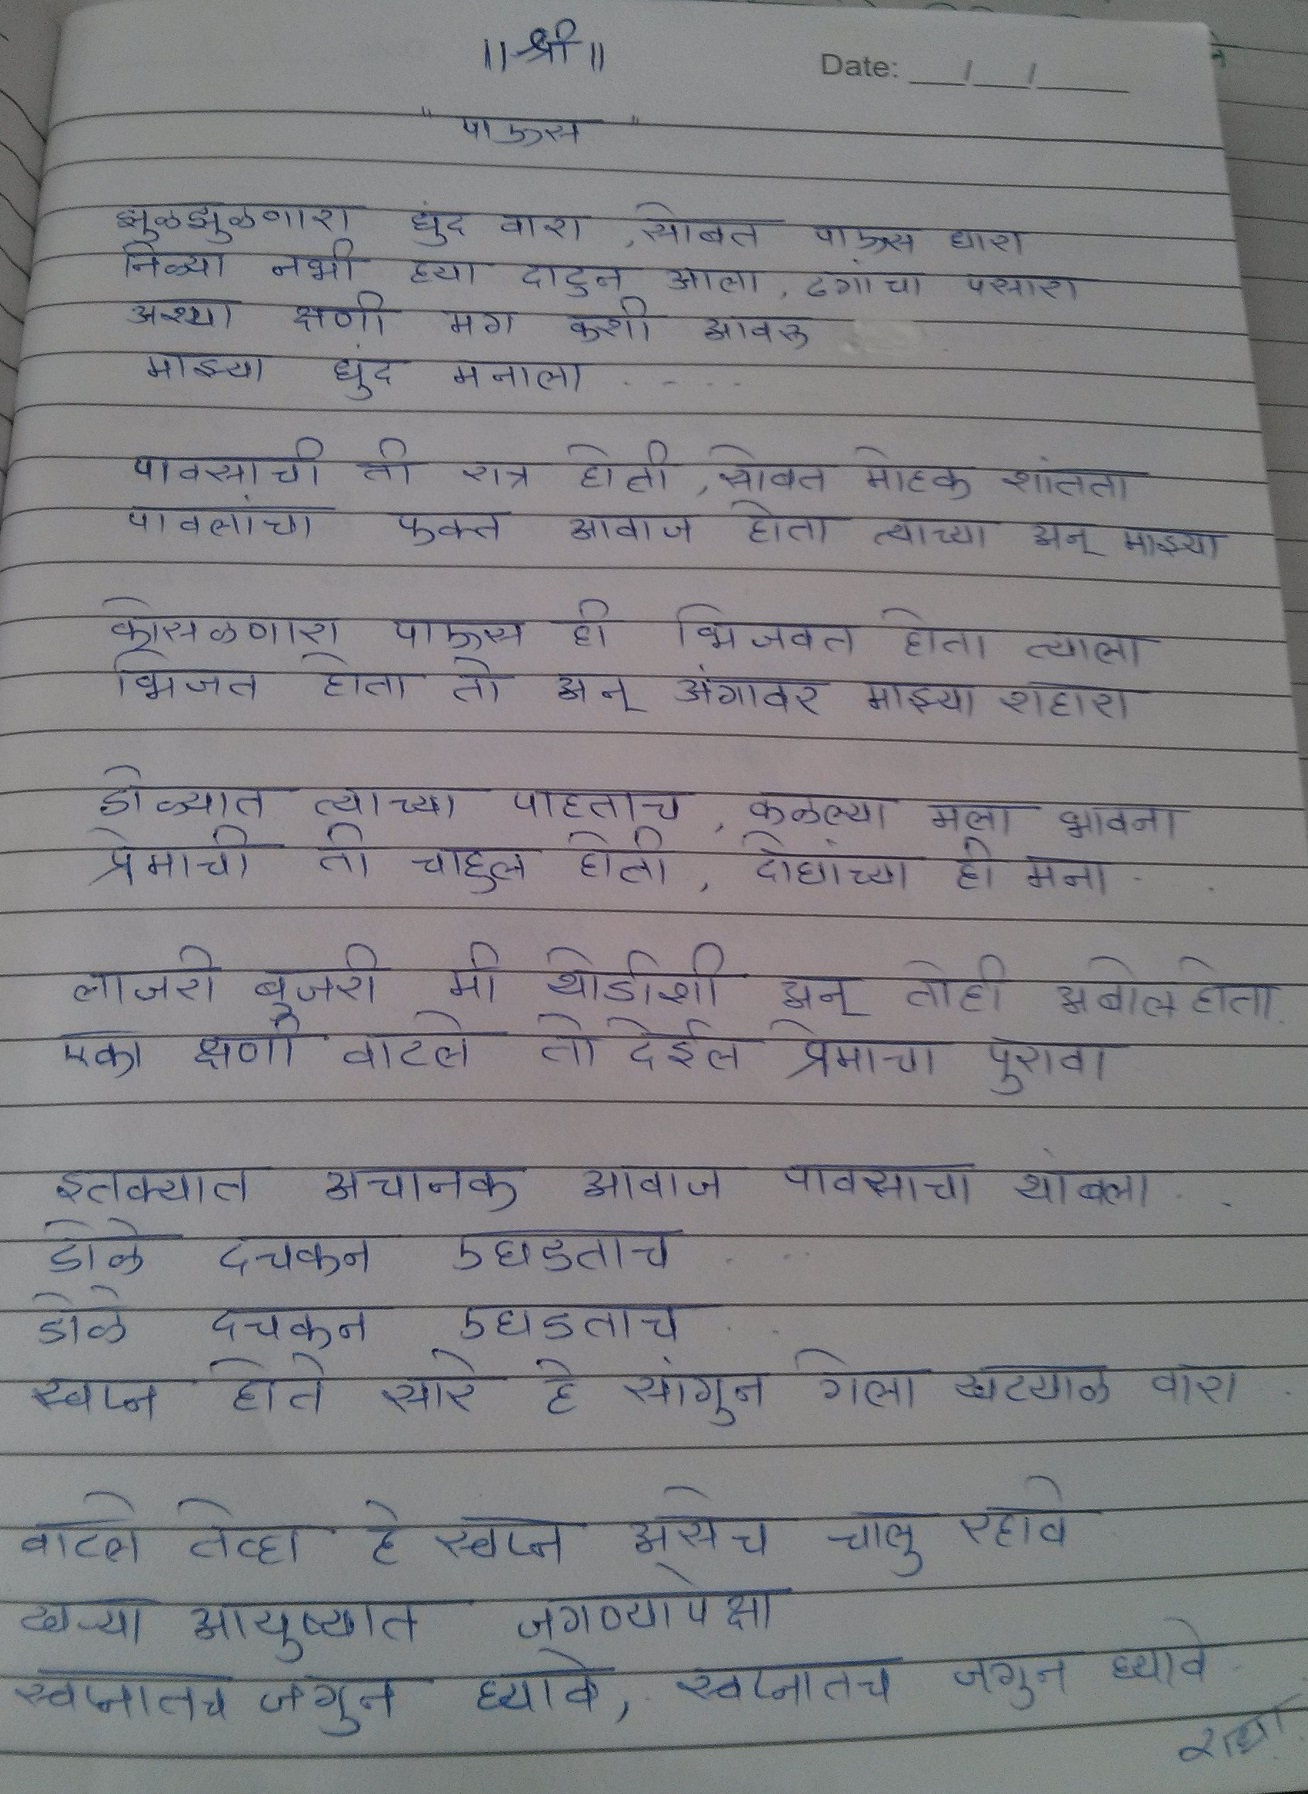 ||श्री||
Date: __/__/____
"पाऊस"
झुळझुळणारा धुंद वारा, सोबत पाऊस धारा
निळ्या नभी ह्या दाटुन आला, ढगांचा पसारा
अश्या क्षणी मग कशी आवरू
माझ्या धुंद मनाला .....
पावसाची ती रात्र होती, सोबत मोहक शांतता
पावलांचा फक्त आवाज होता त्याच्या अन् माझ्या
कोसळणारा पाऊस ही भिजवत होता त्याला
भिजत होता तो अन् अंगावर माझ्या शहारा
डोळ्यात त्याच्या पाहताच, कळल्या मला भावना
प्रेमाची ती चाहुल होती, दोघांच्या ही मना ..
लाजरी बुजरी मी थोडीशी अन् तोही अबोल होता.
एका क्षणी वाटले तो देईल प्रेमाचा पुरावा
इतक्यात अचानक आवाज पावसाचा थांबला ..
डोळे दचकन उघडताच ...
डोळे दचकन उघडताच ..
स्वप्न होते सारे हे सांगुन गेला खट्याळ वारा .
वाटले तेव्हा हे स्वप्न असेच चालु रहावे
खऱ्या आयुष्यात जगण्यापेक्षा
स्वप्नातच जगुन घ्यावे, स्वप्नातच जगुन घ्यावे.
राधा